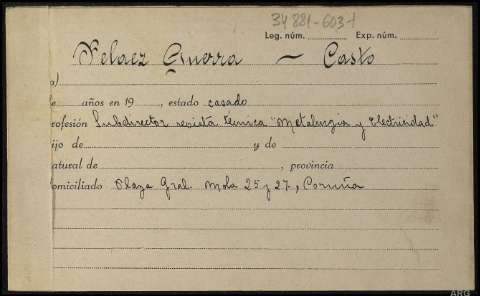 34881-603-1
Leg. núm. Exp. núm.
Pelaez Guerra — Casto
a)
e años en 19 , estado casado
rofesión Subdirector revista tecnica "Metalurgia y Electricidad"
ijo de y de
atural de , provincia
omiciliado Plaza Gral. Mola 25 y 27, Coruña
ARG